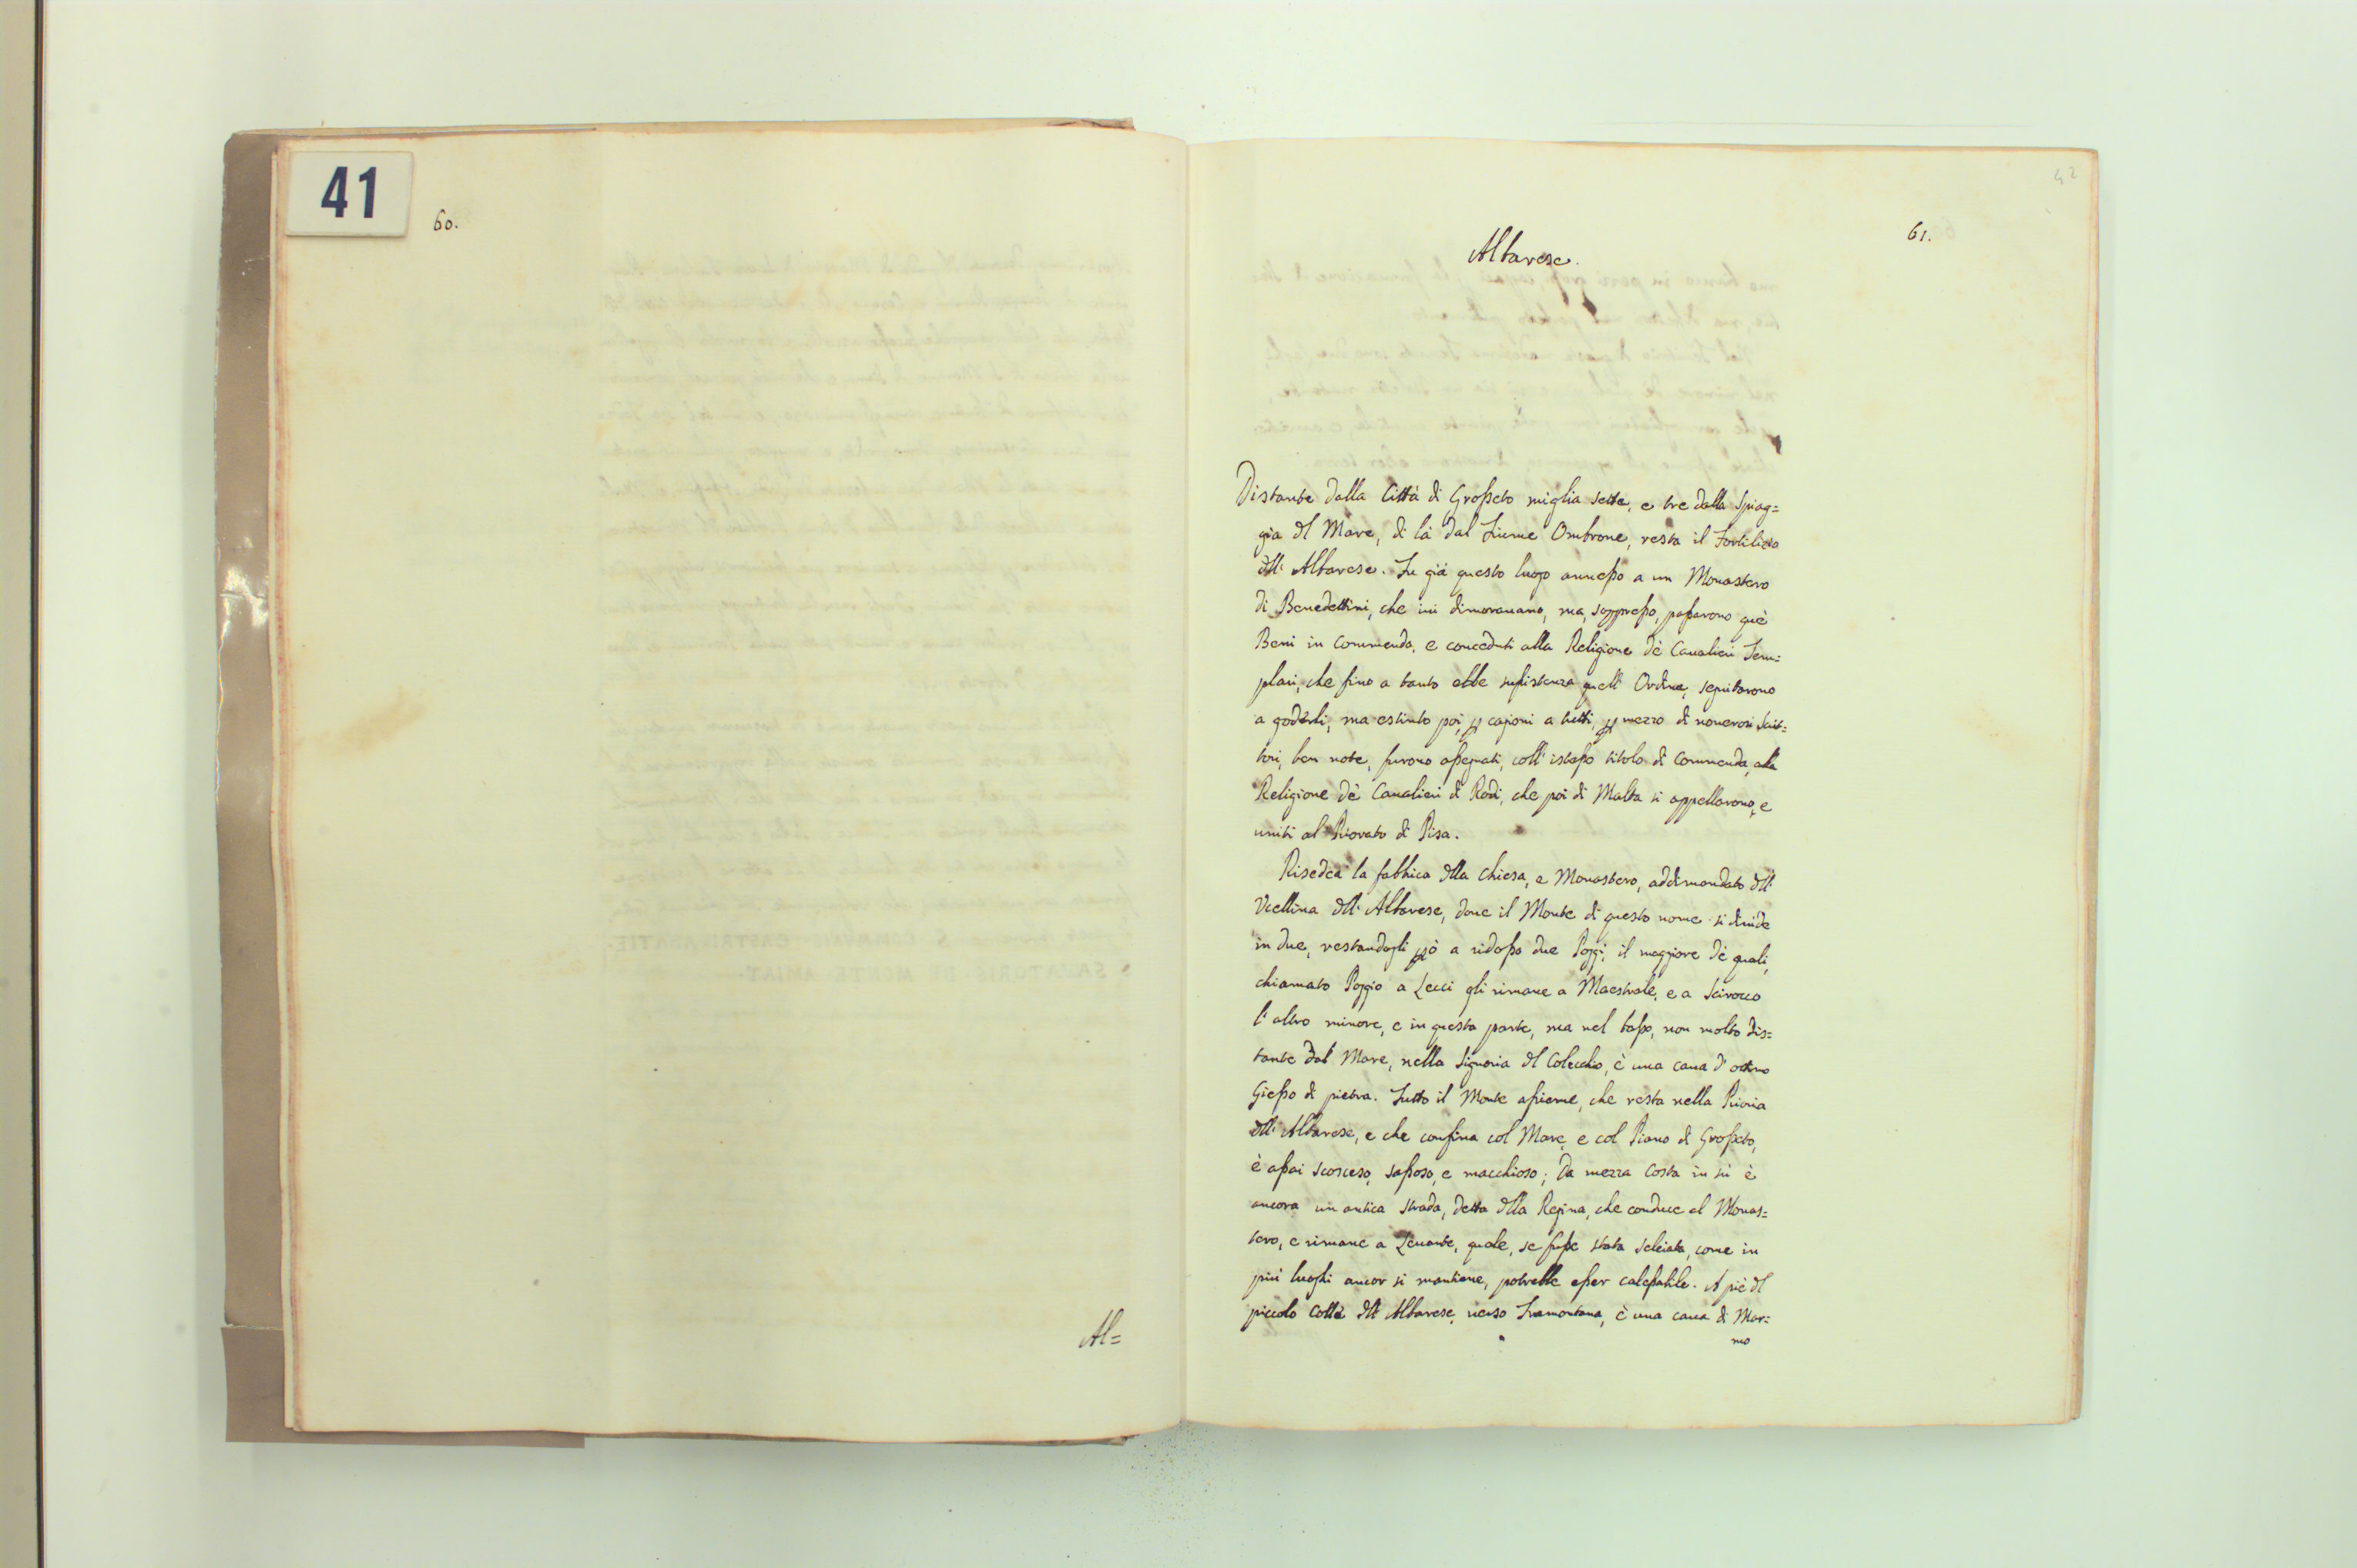 41
60.
Al=
42
61.
Albarese.
Distante dalla Città di Grosseto miglia sette, e tre dalla Spiag=
gia del Mare, di là dal Fiume Ombrone, resta il Fortilizio
dell' Albarese. Fu già questo luogo annesso a un Monastero
di Benedettini, che ivi dimorauano, ma, soppresso, passarono què
Beni in Commenda, e conceduti alla Religione dè Caualieri Tem=
plari, che fino a tanto ebbe sussistenza quell' Ordine, seguitarono
a goderli; ma estinto poi, p cagioni a tutti, p mezzo di numerosi Scrit=
tori, ben note, furono assegnati, coll' istesso titolo di Commenda, alla
Religione dè Caualieri di Rodi, che poi di Malta si appellarono, e
uniti al Priorato di Pisa.
Risedea la fabbrica della Chiesa, e Monastero, addimandato dell'
Vcellina dell' Albarese, doue il Monte di questo nome si diuide
in due, restandogli pò a ridosso due Poggi, il maggiore dè quali,
chiamato Poggio a Lecci gli rimane a Maestrale, e a Scirocco
l' altro minore, e in questa parte, ma nel basso, non molto dis=
tante dal Mare, nella Signoria del Colecchio, è una caua d' ottimo
Giesso di pietra. Tutto il Monte assieme, che resta nella Prioria
dell' Albarese, e che confina col Mare, e col Piano di Grosseto,
è assai scosceso, sassoso, e macchioso; Da mezza Costa in sù è
ancora un antica strada, detta della Regina, che conduce al Monas=
tero, e rimane a Leuante, quale, se fusse stata selciata, come in
più luoghi ancor si mantiene, potrebbe esser calessabile. A piè del
piccolo Colle dell' Albarese, uerso Tramontana, è una caua di Mar=
mo